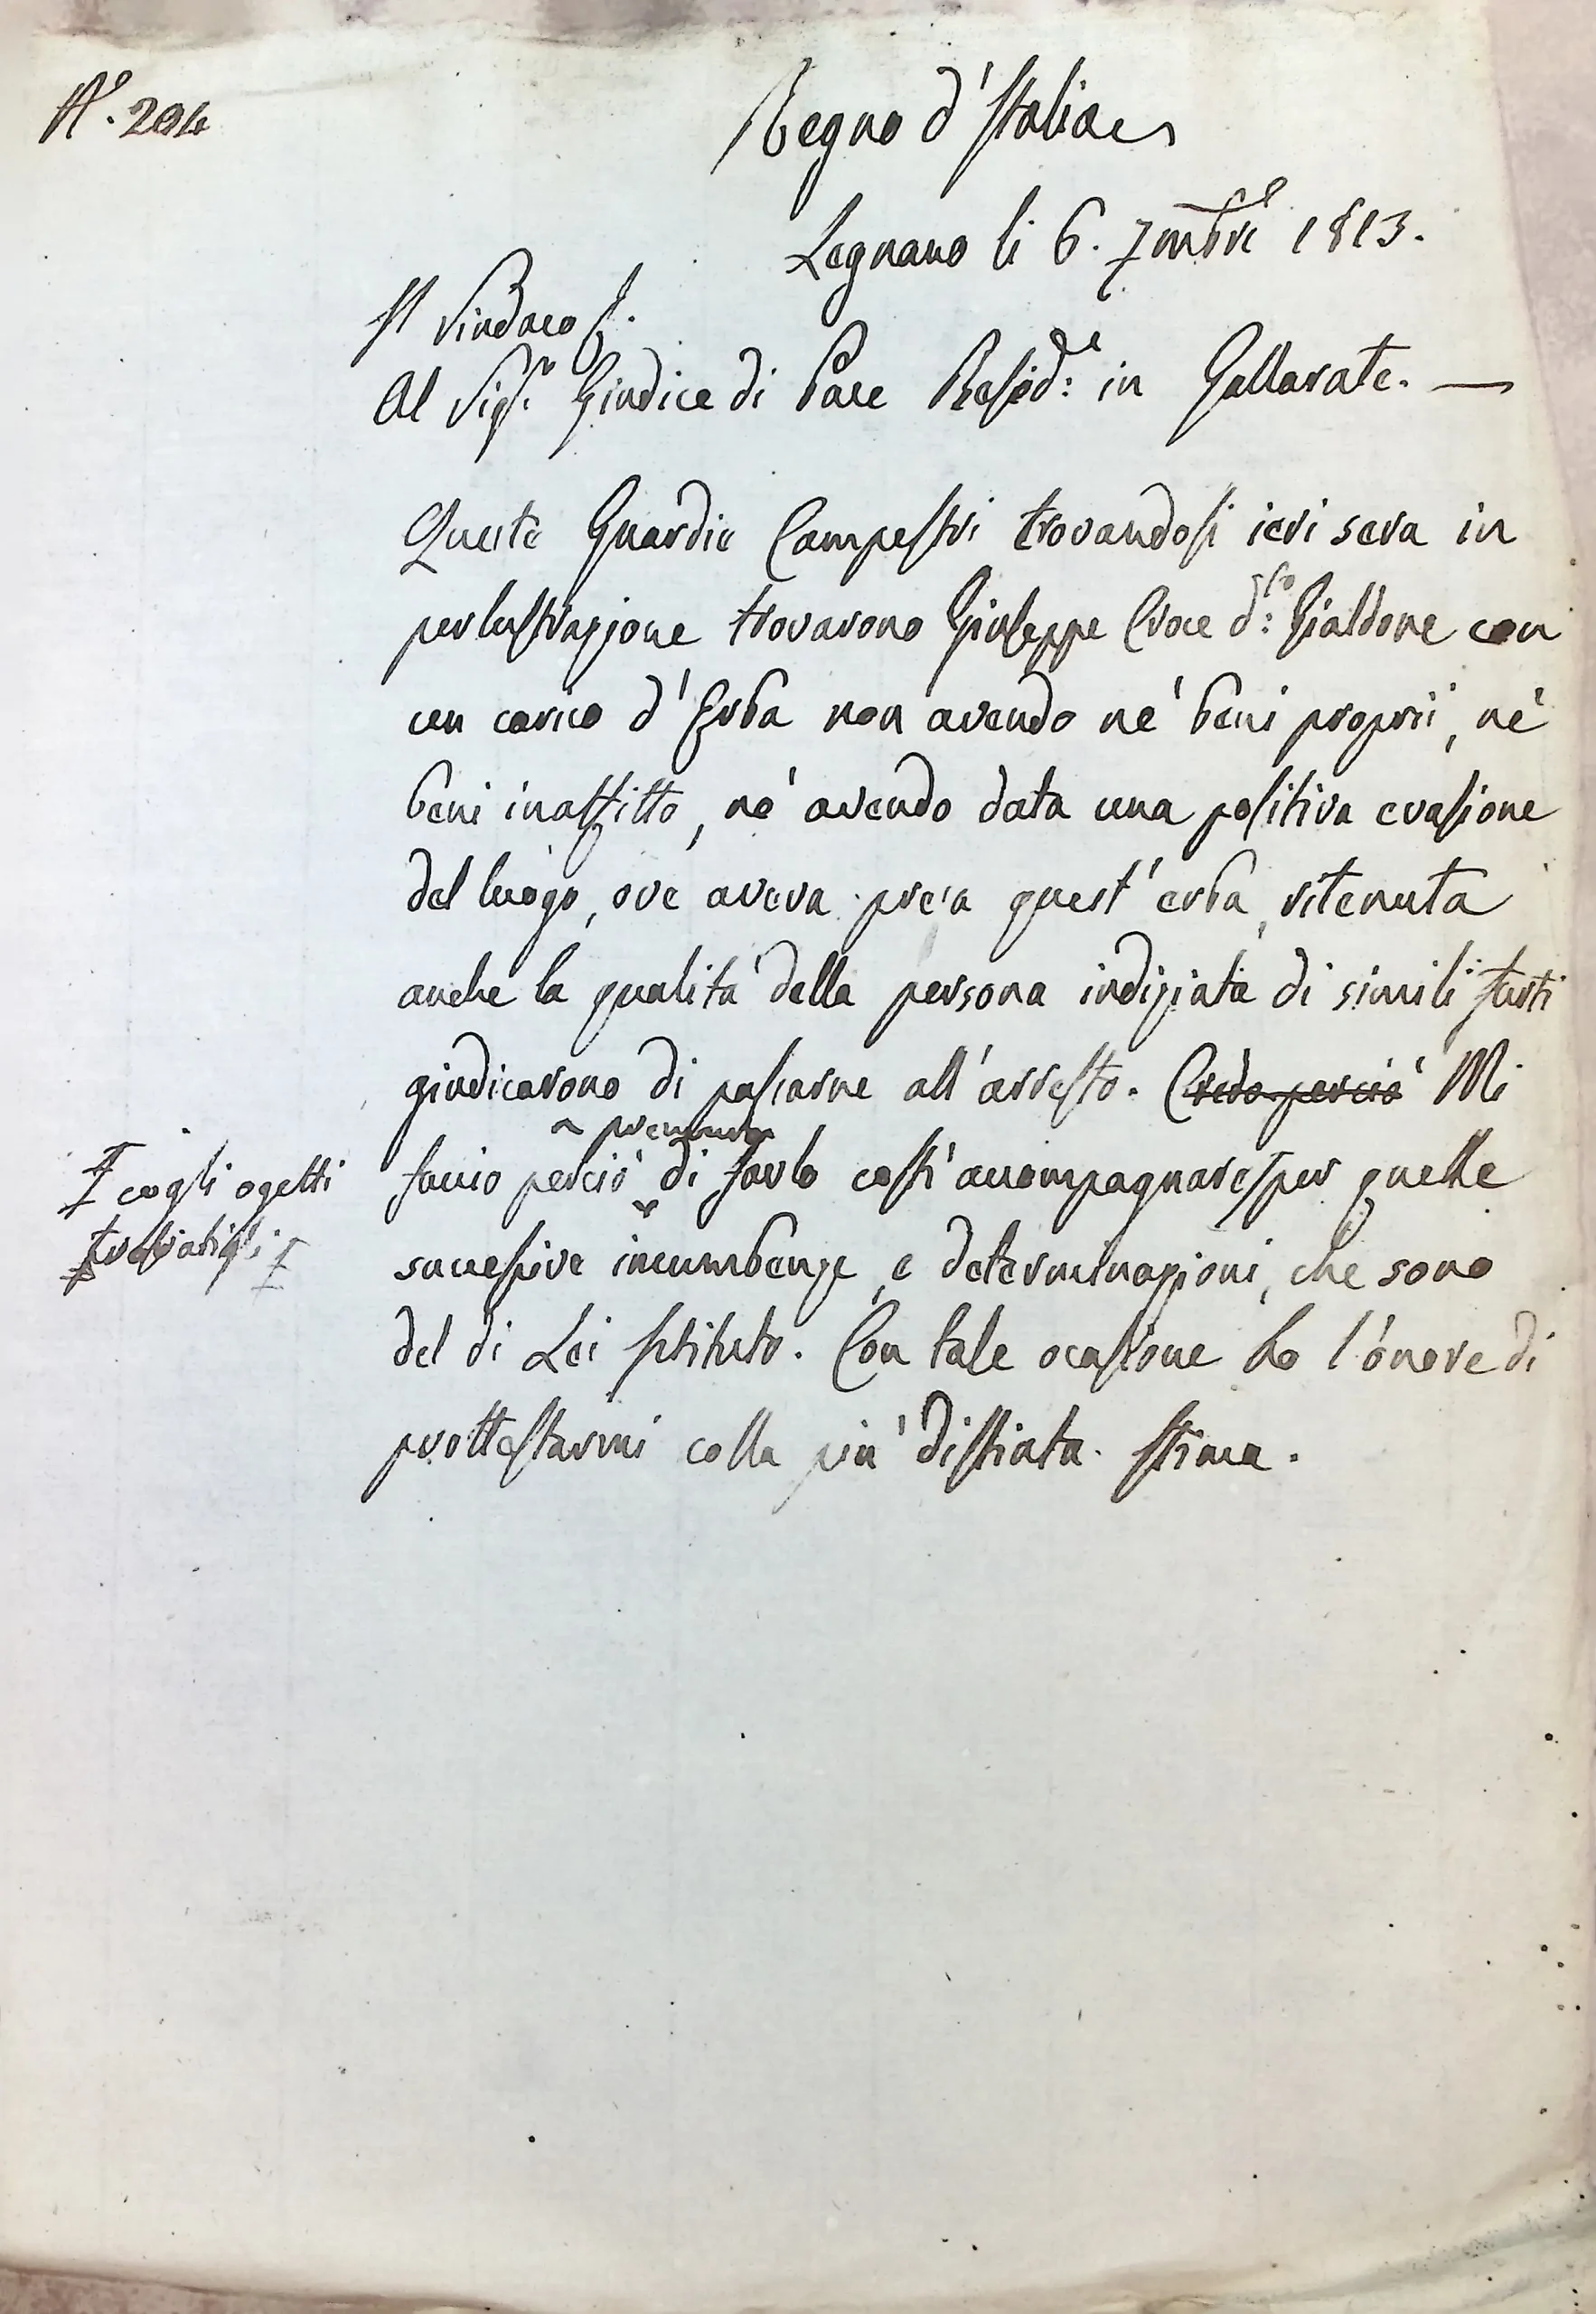 N.º 204
Regno d'Italia
Legnano li 6. 7mbre 1813.
Il Sindaco f.
Al Sig.r Giudice di Pace Resid.te in Gallarate. —
Queste Guardie Campestri trovandosi ieri sera in
perlustrazione trovarono Giuseppe Croce d.to Gialdone con
un carico d'Erba non avendo nè beni proprii, nè
beni inaffitto, nè avendo data una positiva evasione
del luogo, ove aveva presa quest'erba, ritenuta
anche la qualità della persona indiziata di simili furti
giudicarono di passarne all'arresto. Credo perciò Mi
premura
faccio perciò di farlo costì accompagnare per quelle
cogli ogetti
successive incumbenze, e determinazioni, che sono
del di Lei Istituto. Con tale ocasione ho l'onore di
prottestarmi colla più distinta stima.